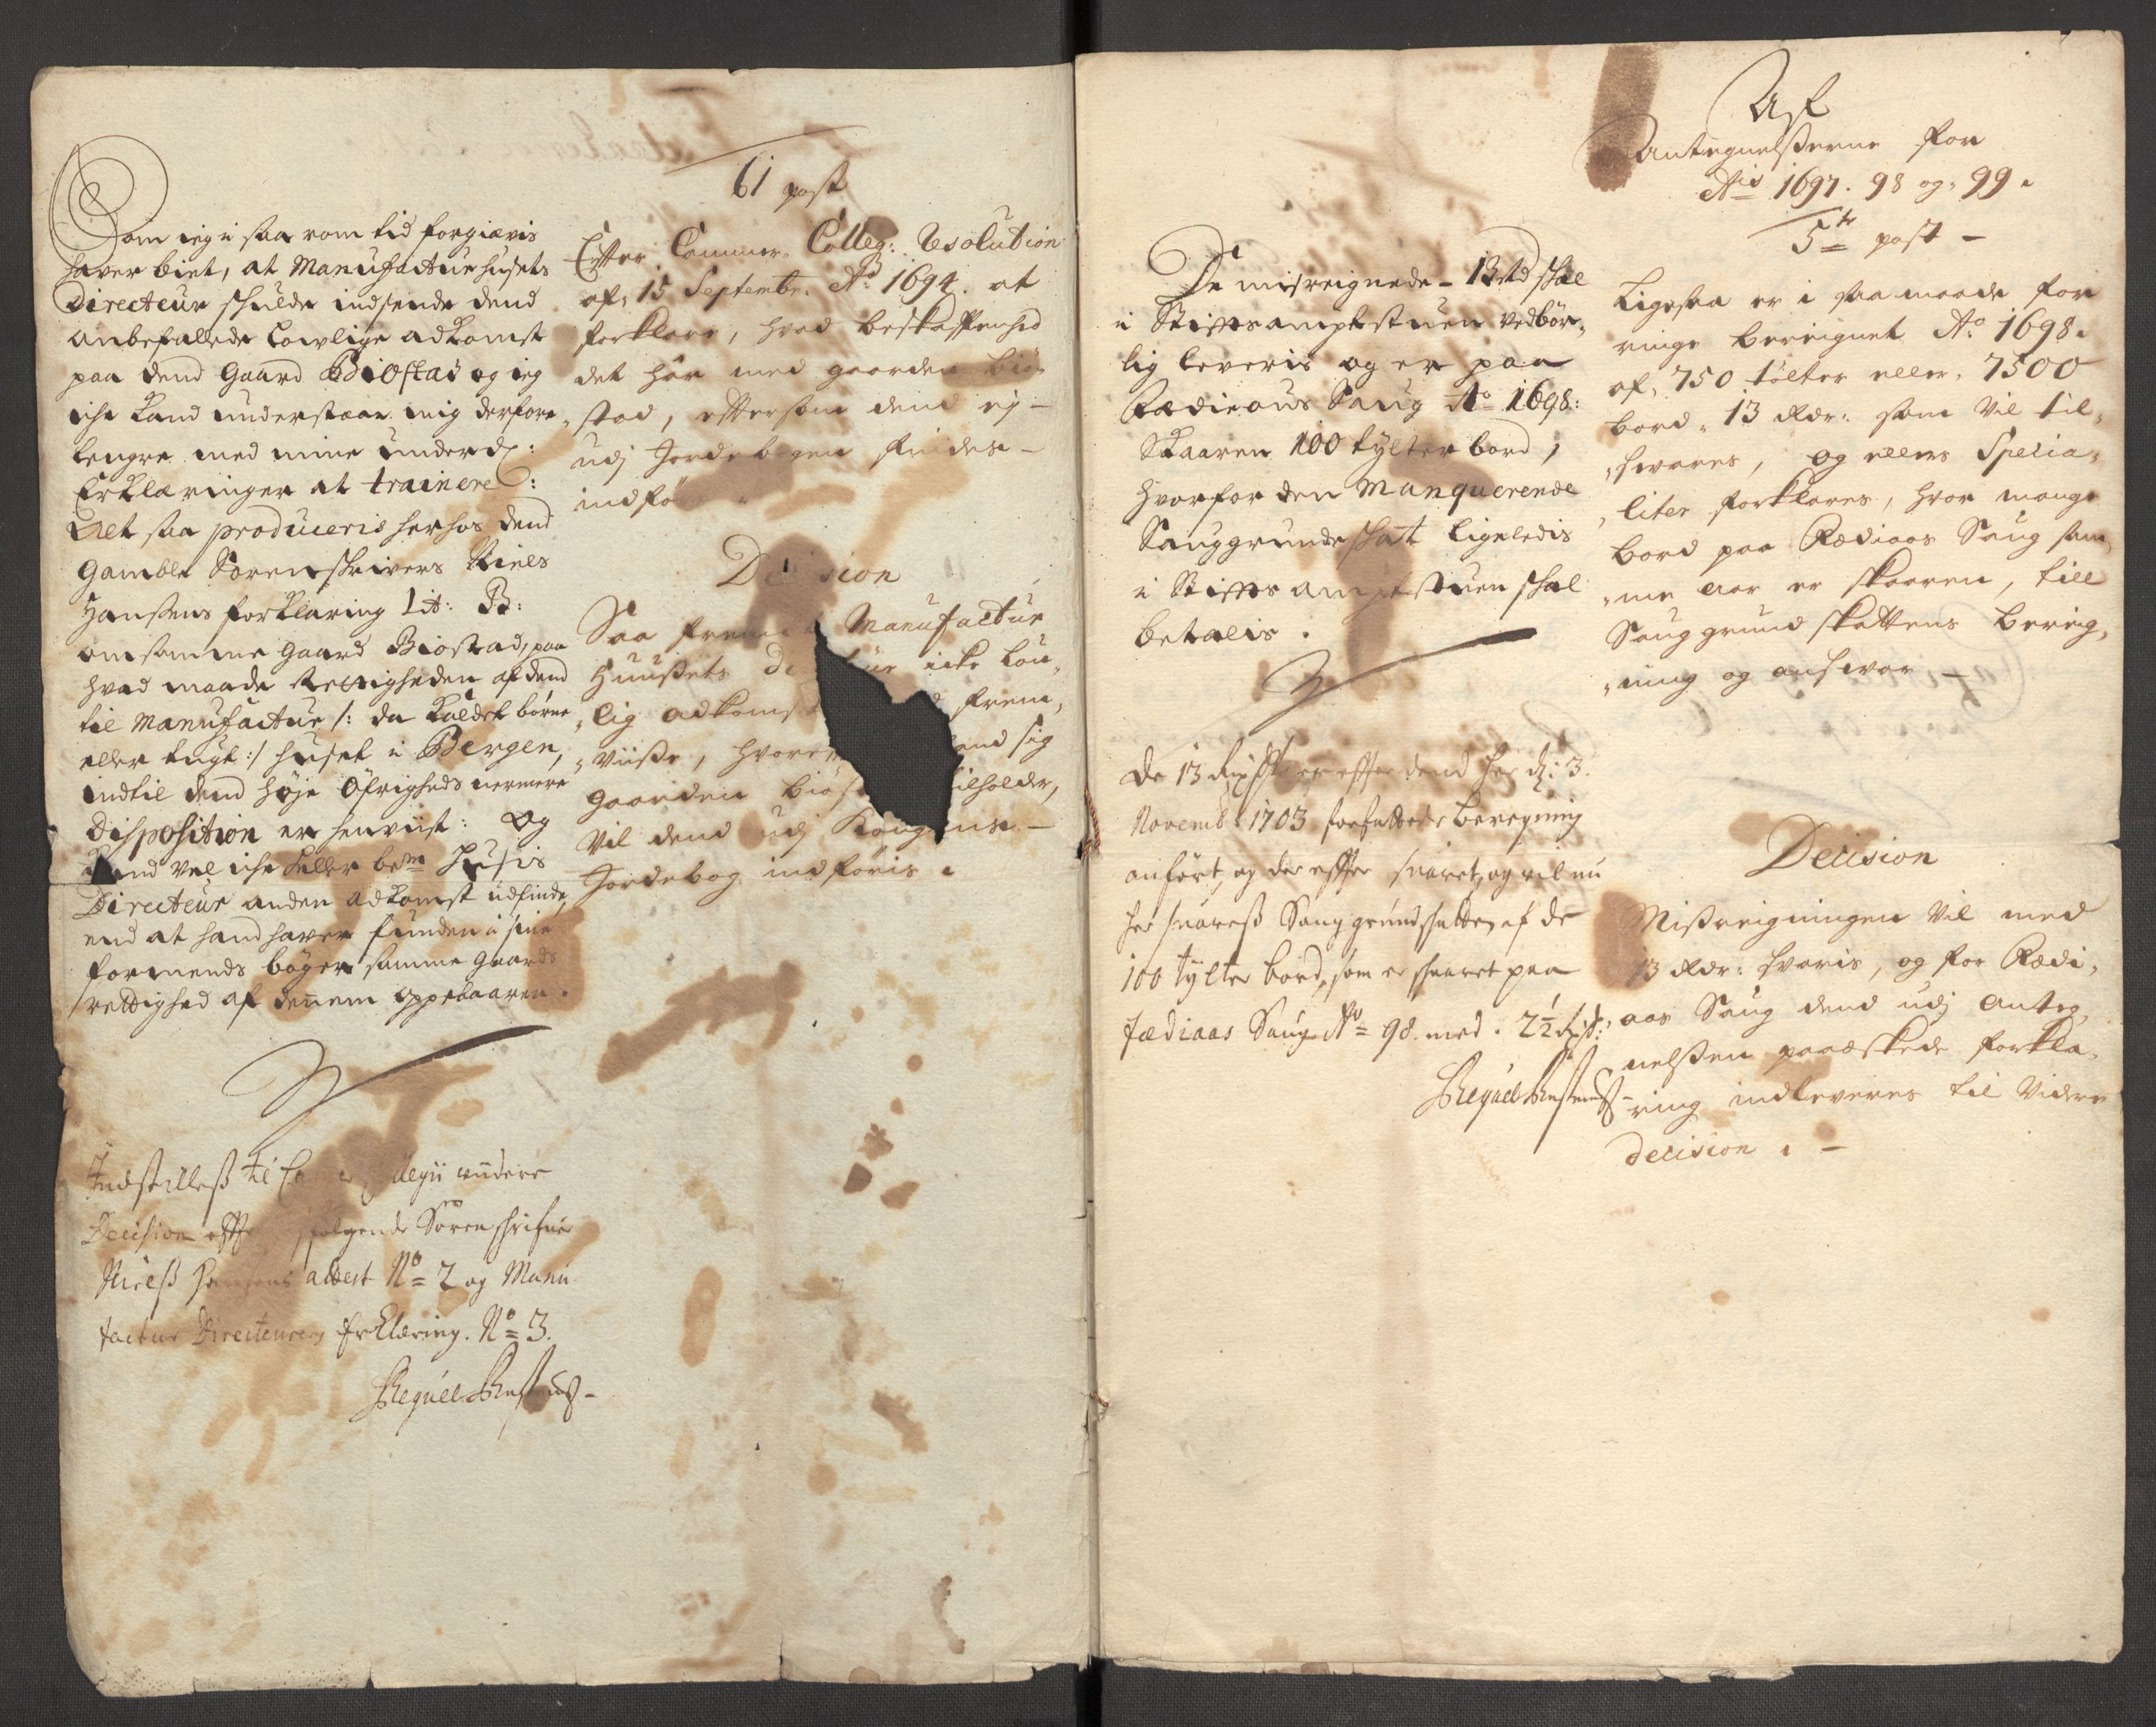 61 post
Som ieg i saa rom tid forgiæves
haver biet, at Manufacturhusets
Directeur schulde indsende dend
anbefallede Lovlige adKomst
paa dend Gaard Biostad og ieg
iche Kand understaae mig derfore
lengre med mine underd:
Erklæringer at trainere:
Alt saa produceris herhos dend
Gamble Sorenschrivers Niels
Hansens forKlaring Lit: B:
om samme Gaard Biostad, paa
hvad maade Rettigheden af dend
til Manufactur /: da Kaldet börne
eller tugt :/ huset i Bergen,
indtil dend höje Öfrigheds nermere
disposition er henviist: Og
Kand vel iche heller bem: Husis
Directeur anden adKomst udfinde,
end at hand haver funden i sine
formends böger samme Gaards
rettighed af dennem oppebaaren.
Indstilless til Collegii widere
Decision effter følgende Sorenschrifuer
Nielss Hansens attest No 2 og Manu
factur Directeurens ErKlæring. No 3.
Efter Commer. Colleg: Resolution
af, 15 Septembr. Ao 1694. at
forklare, hvad beskaffenhed
det har med gaarden Biö
stad, eftersom dend ej
udj Jordebogen findes
indför
Decision
Saa fremt Manufactur
Huusets icke Lou,
lig adkomst frem,
viisse, hvorved hand sig
gaarden tilholder,
Vil dend udj Kongens
Jordebog indföris.
De misreignede 13 rd schal
i Stiftsamptstuen vedbör,
lig leveris og er paa
Rædieaas Saug Ao 1698:
Skaaren 100 tylter bord,
hvorfor den Manquerende
Sauggrundeschat ligeledis
i Stiftsamptstuen schal
betalis.
De 13 Rixdr er effter dend her 3.
Novemb: 1703 forfattede beregning
anført, og der effter suaret, og vil nu
her suaress Sauggrundschatten af de
100 tylter bord, som er skaaret paa
Rædiaas Saug Ao 98. med. 2½ Rixd:
Af
Antegnelsserne for
Ais 1697. 98 og 99.
5te post
Ligesaa er i saa maade for
ringe bereignet Ao 1698.
af, 750 tölter eller, 7500
bord, 13 Rdr: som Vil til
svares, og ellers Specia,
liter forklares, hvor mange
bord paa Rædiaas Saug sam,
me aar er skaaren, till
Sauggrundskattens bereig,
ning og ansvar
Decision
Missreigningen Vil med
13 Rdr: svaris, og for Rædi,
aas Saug dend udj Anteg,
nelssen paaæskede forkla,
ring indleveres til Videre
decision.